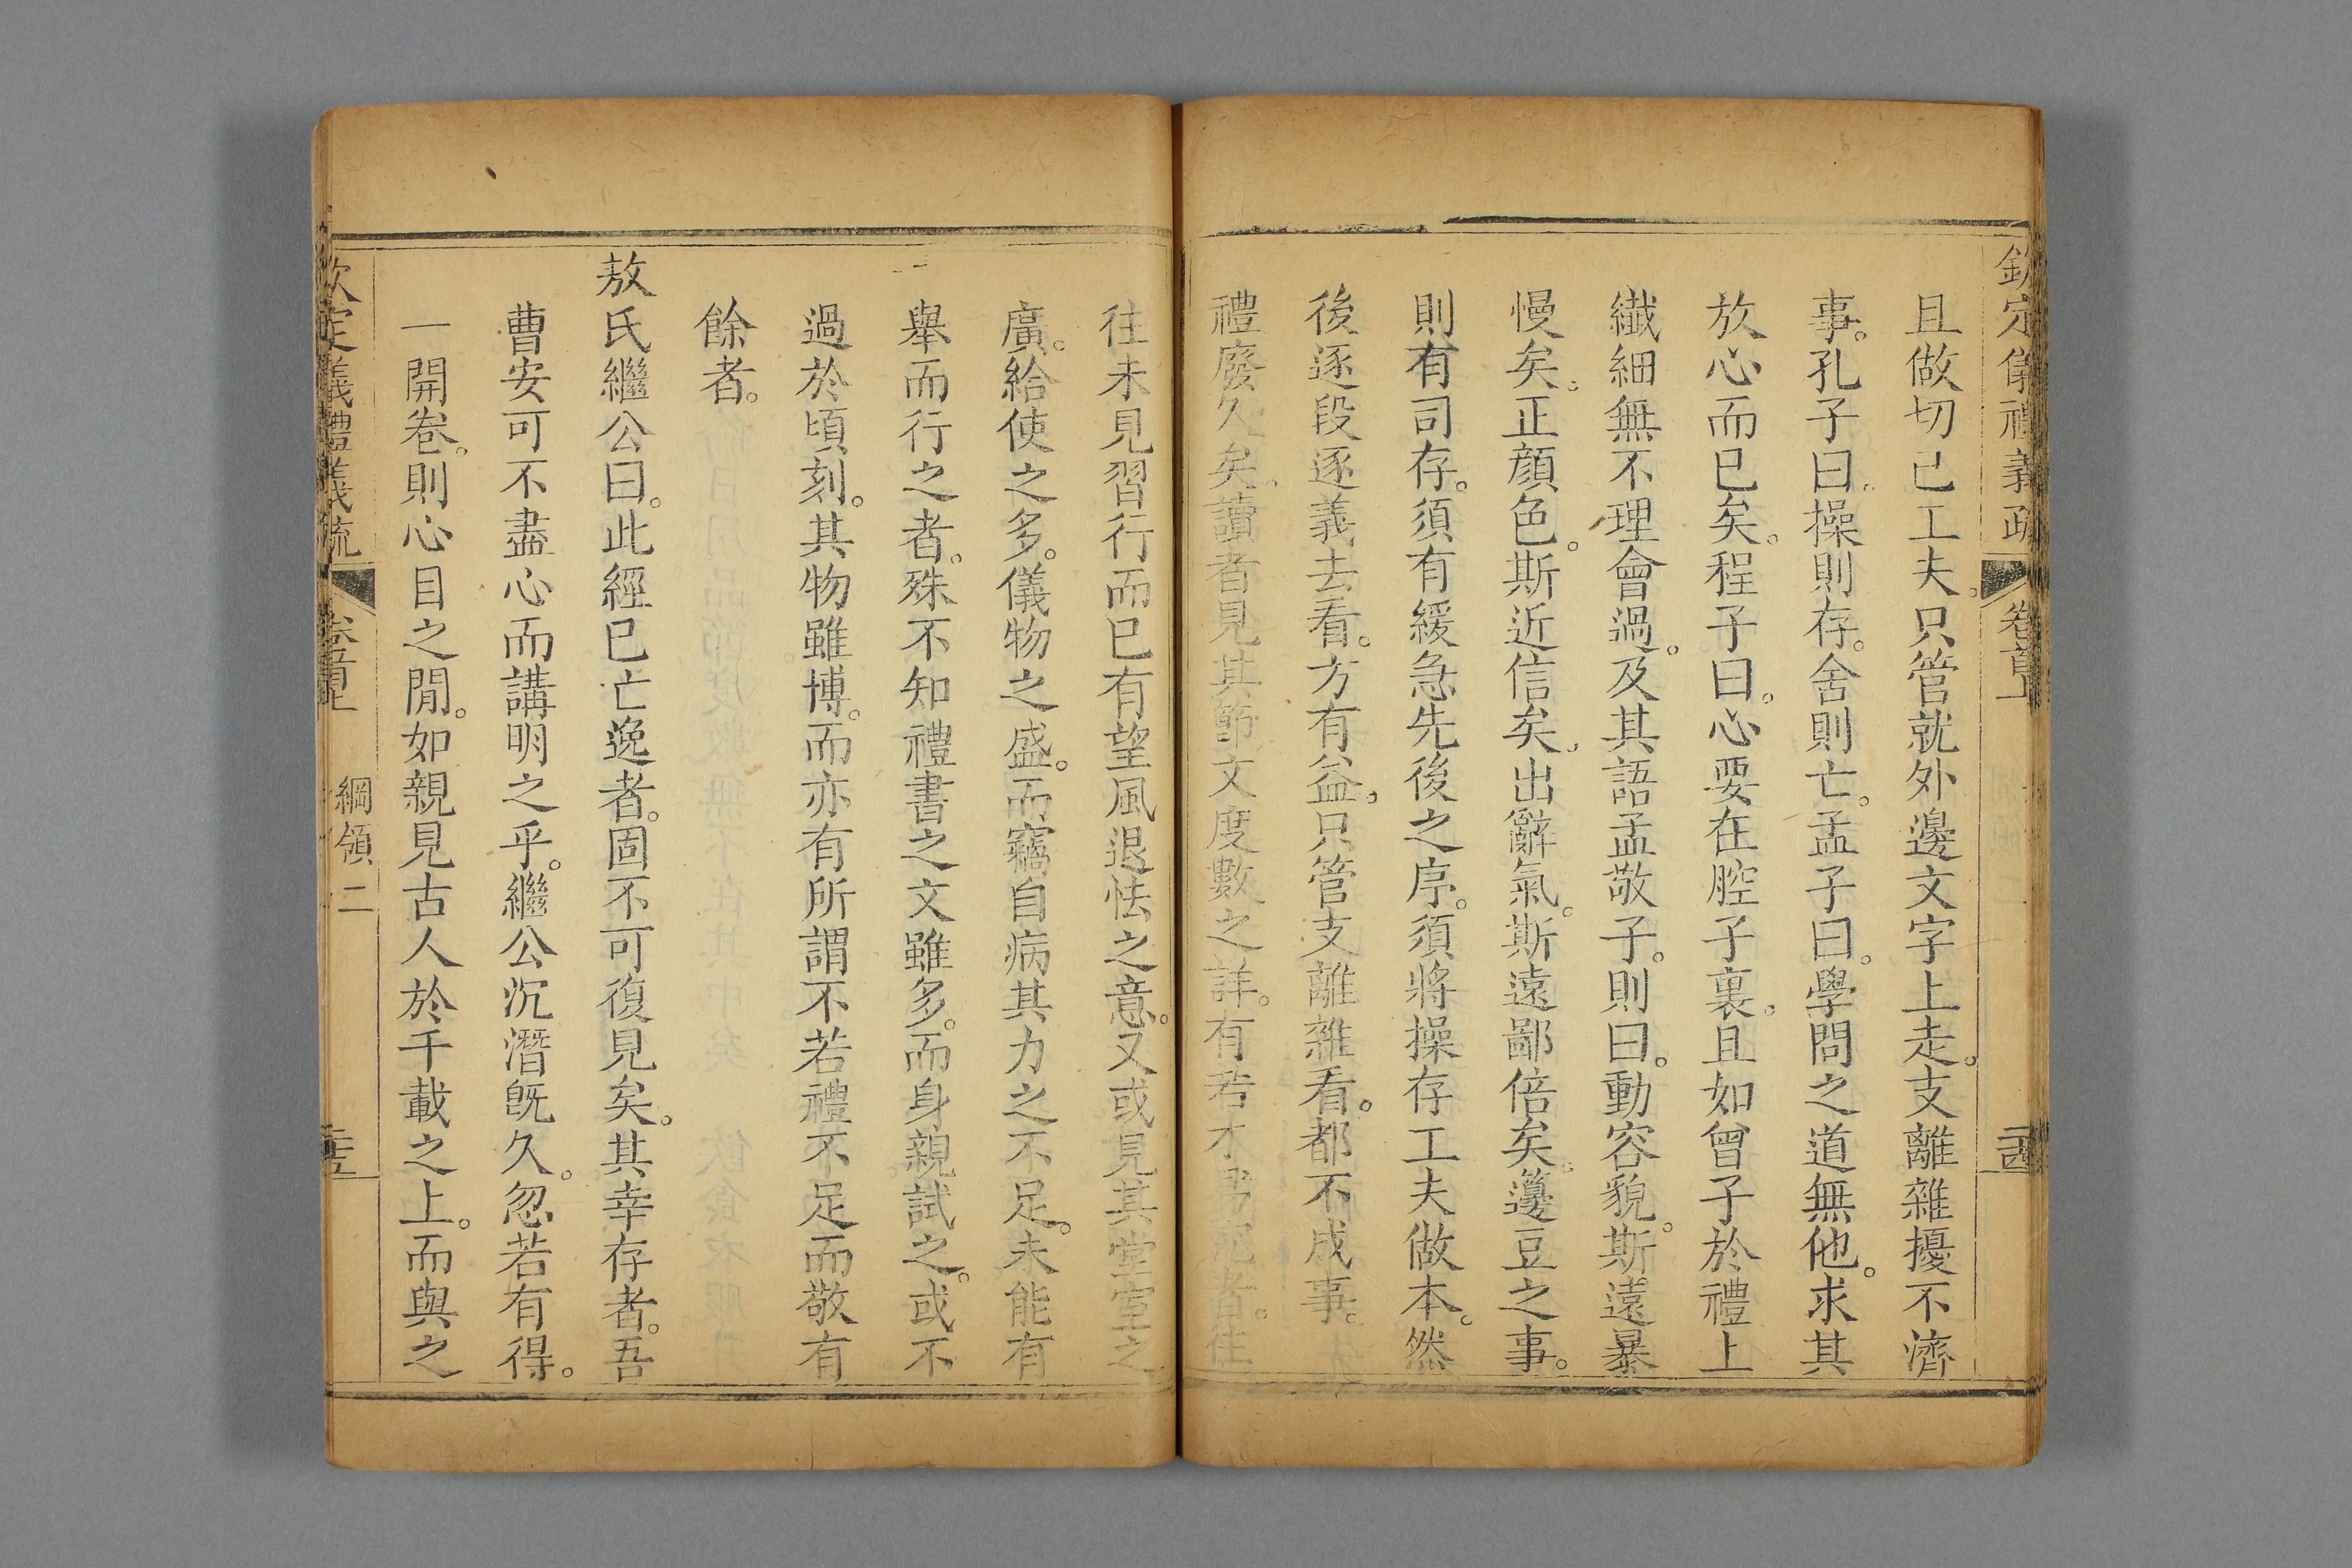 欽定儀禮義疏 卷首上 二十四
且做切己工夫。只管就外邊文字上走。支離雜擾不濟
事。孔子曰。操則存。舍則亡。孟子曰。學問之道無他。求其
放心而已矣。程子曰。心要在腔子裏。且如曾子於禮上
纖細無不理會過。及其語孟敬子。則曰。動容貌。斯遠暴
慢矣。正顏色。斯近信矣。出辭氣。斯遠鄙倍矣。籩豆之事。
則有司存。須有緩急先後之序。須將操存工夫做本。然
後逐段逐義去看。方有益。只管支離雜看。都不成事。
禮廢久矣。讀者見其節文度數之詳。有若不 者。往
往未見習行而已有望風退怯之意。又或見其堂室之
廣。給使之多。儀物之盛。而竊自病其力之不足。未能有
舉而行之者。殊不知禮書之文雖多。而身親試之。或不
過於頃刻。其物雖博。而亦有所謂不若禮不足而敬有
餘者。
敖氏繼公曰。此經已亡逸者。固不可復見矣。其幸存者。吾
曹安可不盡心而講明之乎。繼公沉潛旣久。忽若有得。
一開卷。則心目之閒。如親見古人於千載之上。而與之
欽定儀禮義疏 卷首上 綱領二 二十五